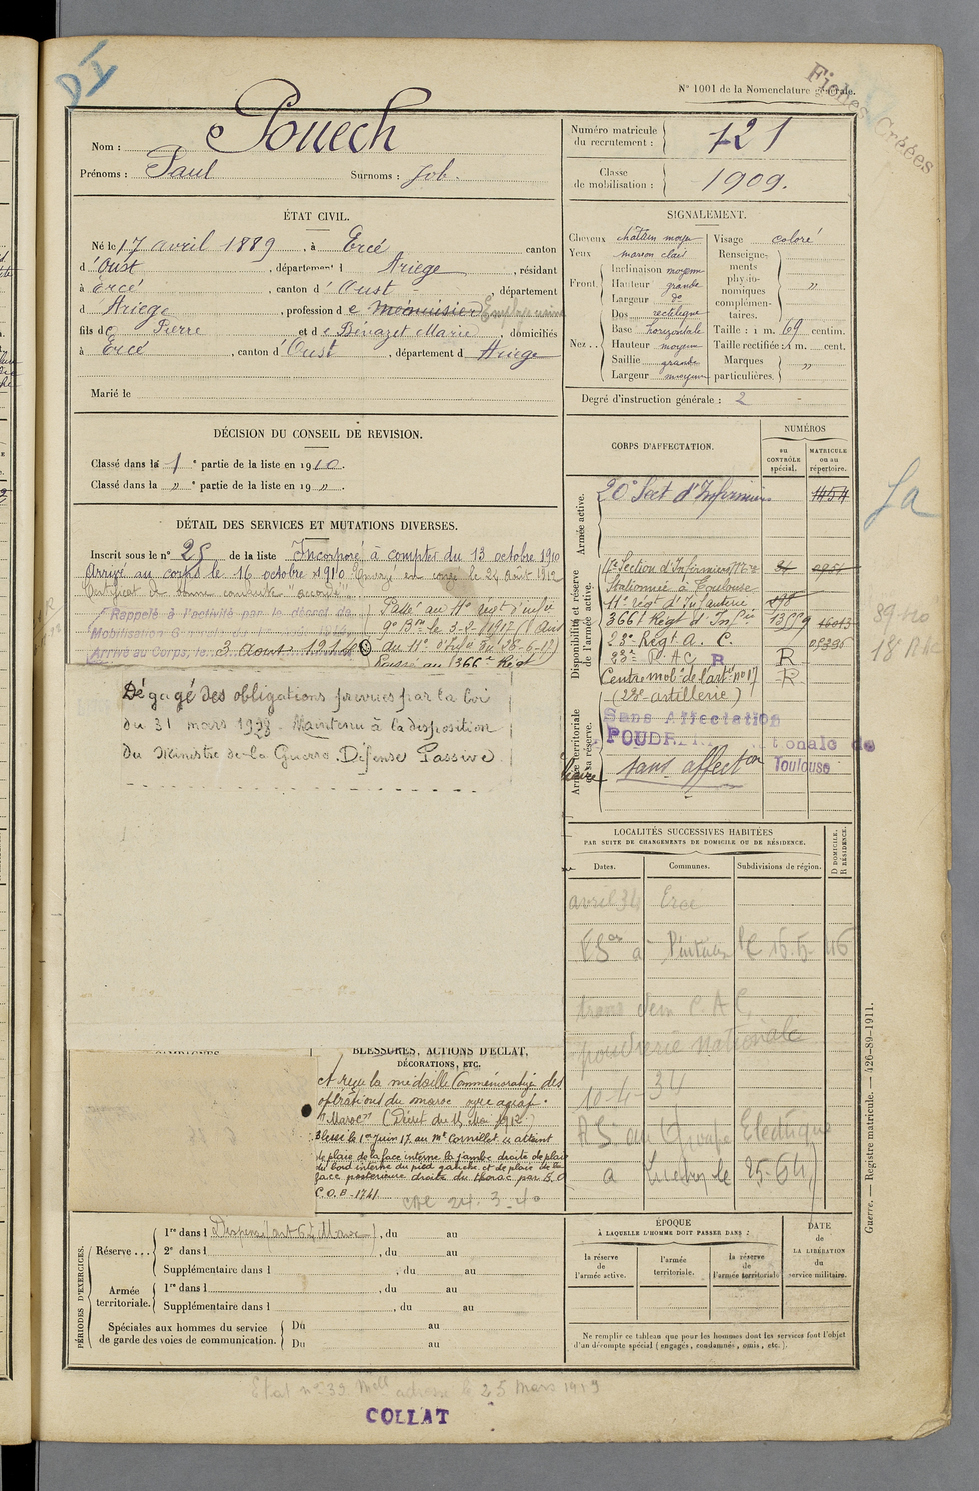 DI
Fiches Créées
N° 1001 de la Nomenclature générale.
Nom : Pouech
Prénoms : Paul Surnoms : Job.
Numéro matricule du recrutement : 721
Classe de mobilisation : 1909.
ÉTAT CIVIL.
Né le 17 avril 1889, à Ercé canton
d'Oust, département d Ariège, résidant
à Ercé, canton d'Oust, département
d'Ariège, profession de menuisier Employé
fils de Pierre et de Bénazet Marie, domiciliés
à Ercé, canton d'Oust, département d Ariège
Marié le
SIGNALEMENT.
Cheveux châtain moyen
Yeux marron clair
Front. Inclinaison moyenne
Hauteur grande
Largeur do
Nez.. Dos rectiligne
Base horizontale
Hauteur moyenne
Saillie grande
Largeur moyenne
Visage coloré
Renseignements physionomiques complémentaires. "
Taille : 1 m. 69 centim.
Taille rectifiée : 1 m. cent.
Marques particulières. "
Degré d'instruction générale : 2
DÉCISION DU CONSEIL DE REVISION.
Classé dans la 1e partie de la liste en 1910.
Classé dans la " e partie de la liste en 19 ".
DÉTAIL DES SERVICES ET MUTATIONS DIVERSES.
Inscrit sous le n° 25 de la liste Incorporé à compter du 13 octobre 1910
Arrivé au corps le 16 octobre 1910 Envoyé en congé le 24 août 1912
Certificat de bonne conduite "accordé"
Rappelé à l'activité par le décret de
Mobilisation Générale du 1er Août 1914
Arrivé au Corps, le 3 Août 1914
Passé au 11e régt d'infie
9e Bie le 3-2-1917 (
au 11e d'infie du 26-6-17)
Passé au 366e Régt
Dégagé des obligations prévues par la loi
du 31 mars 1928. Maintenu à la disposition
du Ministre de la Guerre. Défense Passive
CORPS D'AFFECTATION.
NUMÉROS
au CONTRÔLE spécial.
MATRICULE ou au répertoire.
Armée active.
20e Sect d'Infirmiers 1454
Disponibilité et réserve de l'armée active.
17e Section d'Infirmiers Mres
Stationnée à Toulouse
11e régt d'Infanterie
366e Régt d'Infie 16013
23e Régt A. C. 05336
23e R A C R R
Centre mob. de l'artie n° 17 R
(23e artillerie)
Armée territoriale et sa réserve.
Sans Affectation
POUDRERIE Nationale de Toulouse
sans affection
La
89-110
18e RAC
LOCALITÉS SUCCESSIVES HABITÉES
PAR SUITE DE CHANGEMENTS DE DOMICILE OU DE RÉSIDENCE.
Dates. Communes. Subdivisions de région. D DOMICILE. R RÉSIDENCE.
avril 34 Ercé
poudrerie Nationale
10-4-34
AS au Groupe Electrique
BLESSURES, ACTIONS D'ÉCLAT,
DÉCORATIONS, ETC.
A reçu la médaille Commémorative des
opérations du maroc avec agraf.
"Maroc" (Décret du 15 Mai 1912)
Blessé le 1er Juin 17 au Mt Cornillet, atteint
de plaie de la face interne la jambe droite de plaie
du bord interne du pied gauche et de plaie de la
face postérieure droite du thorax par E.O
C.O.B-1741
24-3-40
PÉRIODES D'EXERCICES.
Réserve... 1re dans l Dispensé (art 62 Maroc), du au
2e dans l, du au
Supplémentaire dans l, du au
Armée territoriale. 1re dans l, du au
Supplémentaire dans l, du au
Spéciales aux hommes du service de garde des voies de communication. Du au
Du au
ÉPOQUE
À LAQUELLE L'HOMME DOIT PASSER DANS :
la réserve de l'armée active.
l'armée territoriale.
la réserve de l'armée territoriale
DATE de LA LIBÉRATION du service militaire.
Ne remplir ce tableau que pour les hommes dont les services font l'objet
d'un décompte spécial (engagés, condamnés, omis, etc.).
Guerre. — Registre matricule. — 426-89-1911.
Etat n° 39 adressé le 25 Mars 1919
COLLAT